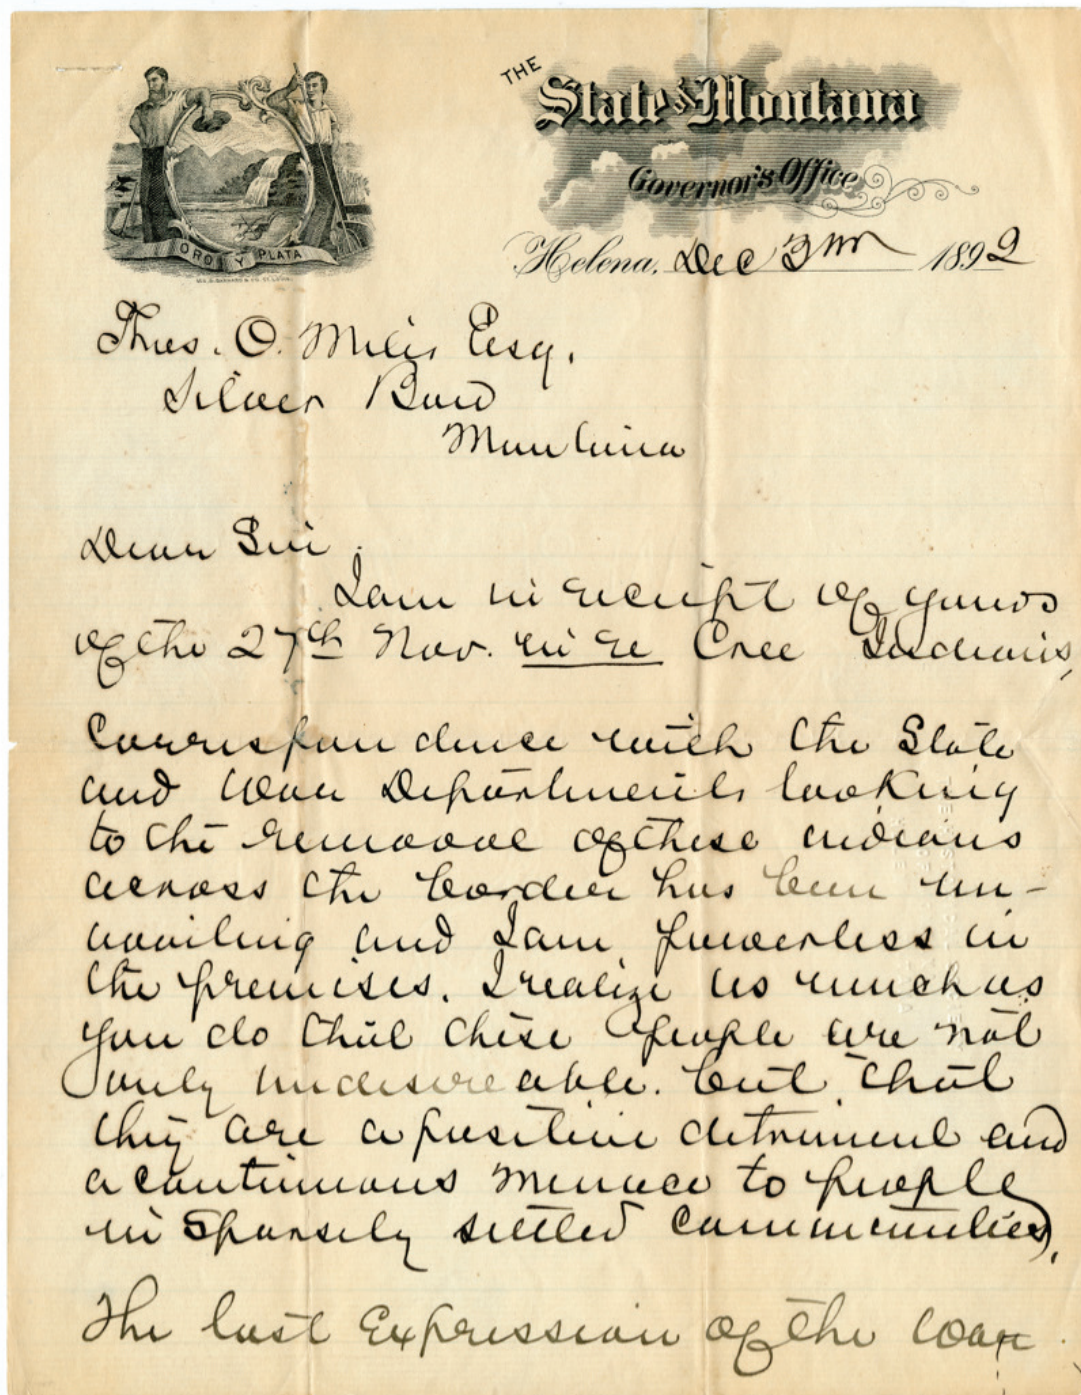 THE
State of Montana
Governor's Office
ORO Y PLATA
Helena, Dec 3rd 1892
Thos. O. Miles Esq.
Silver Bow
Montana
Dear Sir.
I am in receipt of yours
of the 27th Nov. in re Cree Indians,
Correspondence with the State
and War Departments looking
to the removal of these indians
across the border has been un-
availing and I am powerless in
the premises. I realize as much as
you do that these people are not
only undesireable. but that
they are a positive detriment and
a continuous menace to people
in sparsely settled communities.
The last Expression of the War